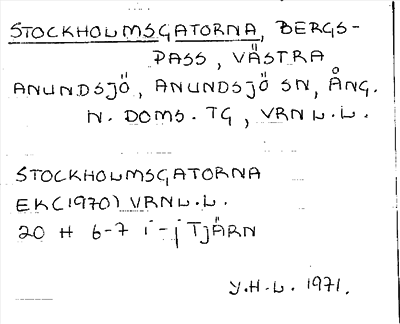 STOCKHOLMSGATORNA, BERGS-
PASS, VÄSTRA
ANUNDSJÖ, ANUNDSJÖ SN, ÅNG.
N. DOMS. TG, VRN L.L.
STOCKHOLMSGATORNA
EK(1970) VRN L.L.
20 H 6-7 i-j TJÄRN
Y.H-L. 1971.